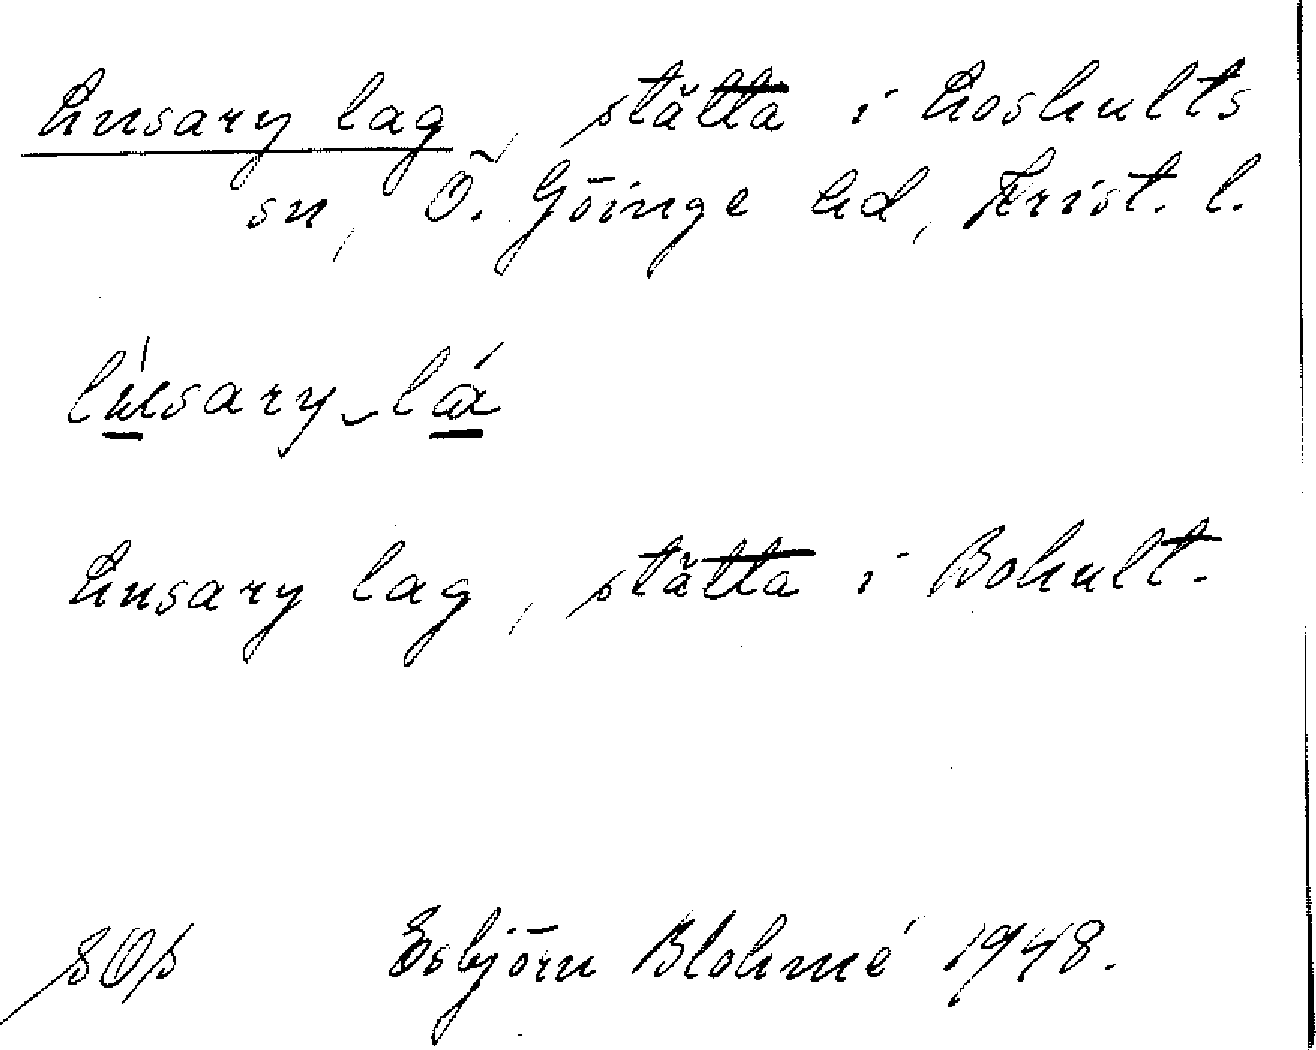 Lusary lag, stätta i Loshults
sn, Ö. Göinge hd, Krist. l.
lu̍sary-lá
Lusary lag, stätta i Bohult.
Esbjörn Blohmé 1948.